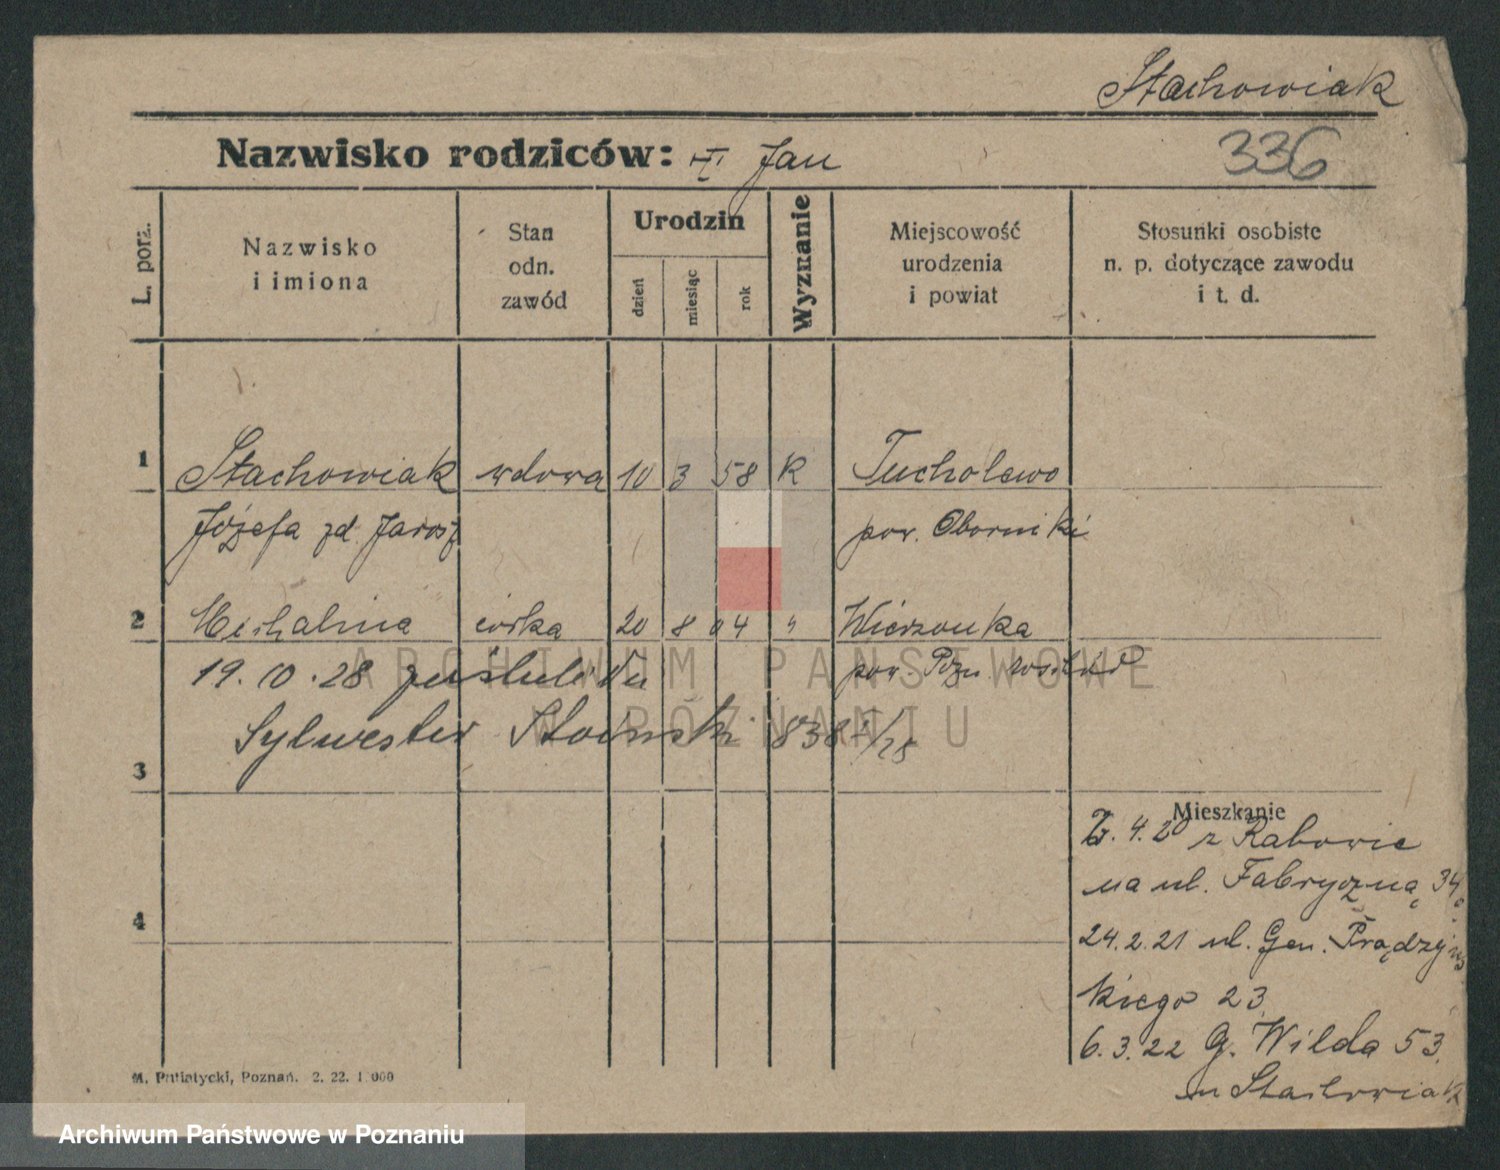 Stachowiak
Nazwisko rodziców: Jan
336
L. porz.
Nazwisko
i imiona
Stan
odn.
zawód
Urodzin
dzień
miesiąc
rok
Wyznanie
Miejscowość
urodzenia
i powiat
Stosunki osobiste
n. p. dotyczące zawodu
i t. d.
1 Stachowiak wdowa 10 3 58 K Tucholewo
Józefa zd. Jarosz pow. Oborniki
2 Michalina córka 20 8 04 " Wierzonka
19.10.28 poślubiła pow. Pozn. wschód
Sylwester 838
3
Mieszkanie
4.20 z Rabowic
na ul. Fabryczną 34
4
24.2.21 ul. Gen. Prądzyńs
kiego 23
6.3.22 G. Wilda 53
Stachowiak
M. Putiatycki, Poznań. 2. 22. 1.000
ARCHIWUM PAŃSTWOWE
W POZNANIU
Archiwum Państwowe w Poznaniu